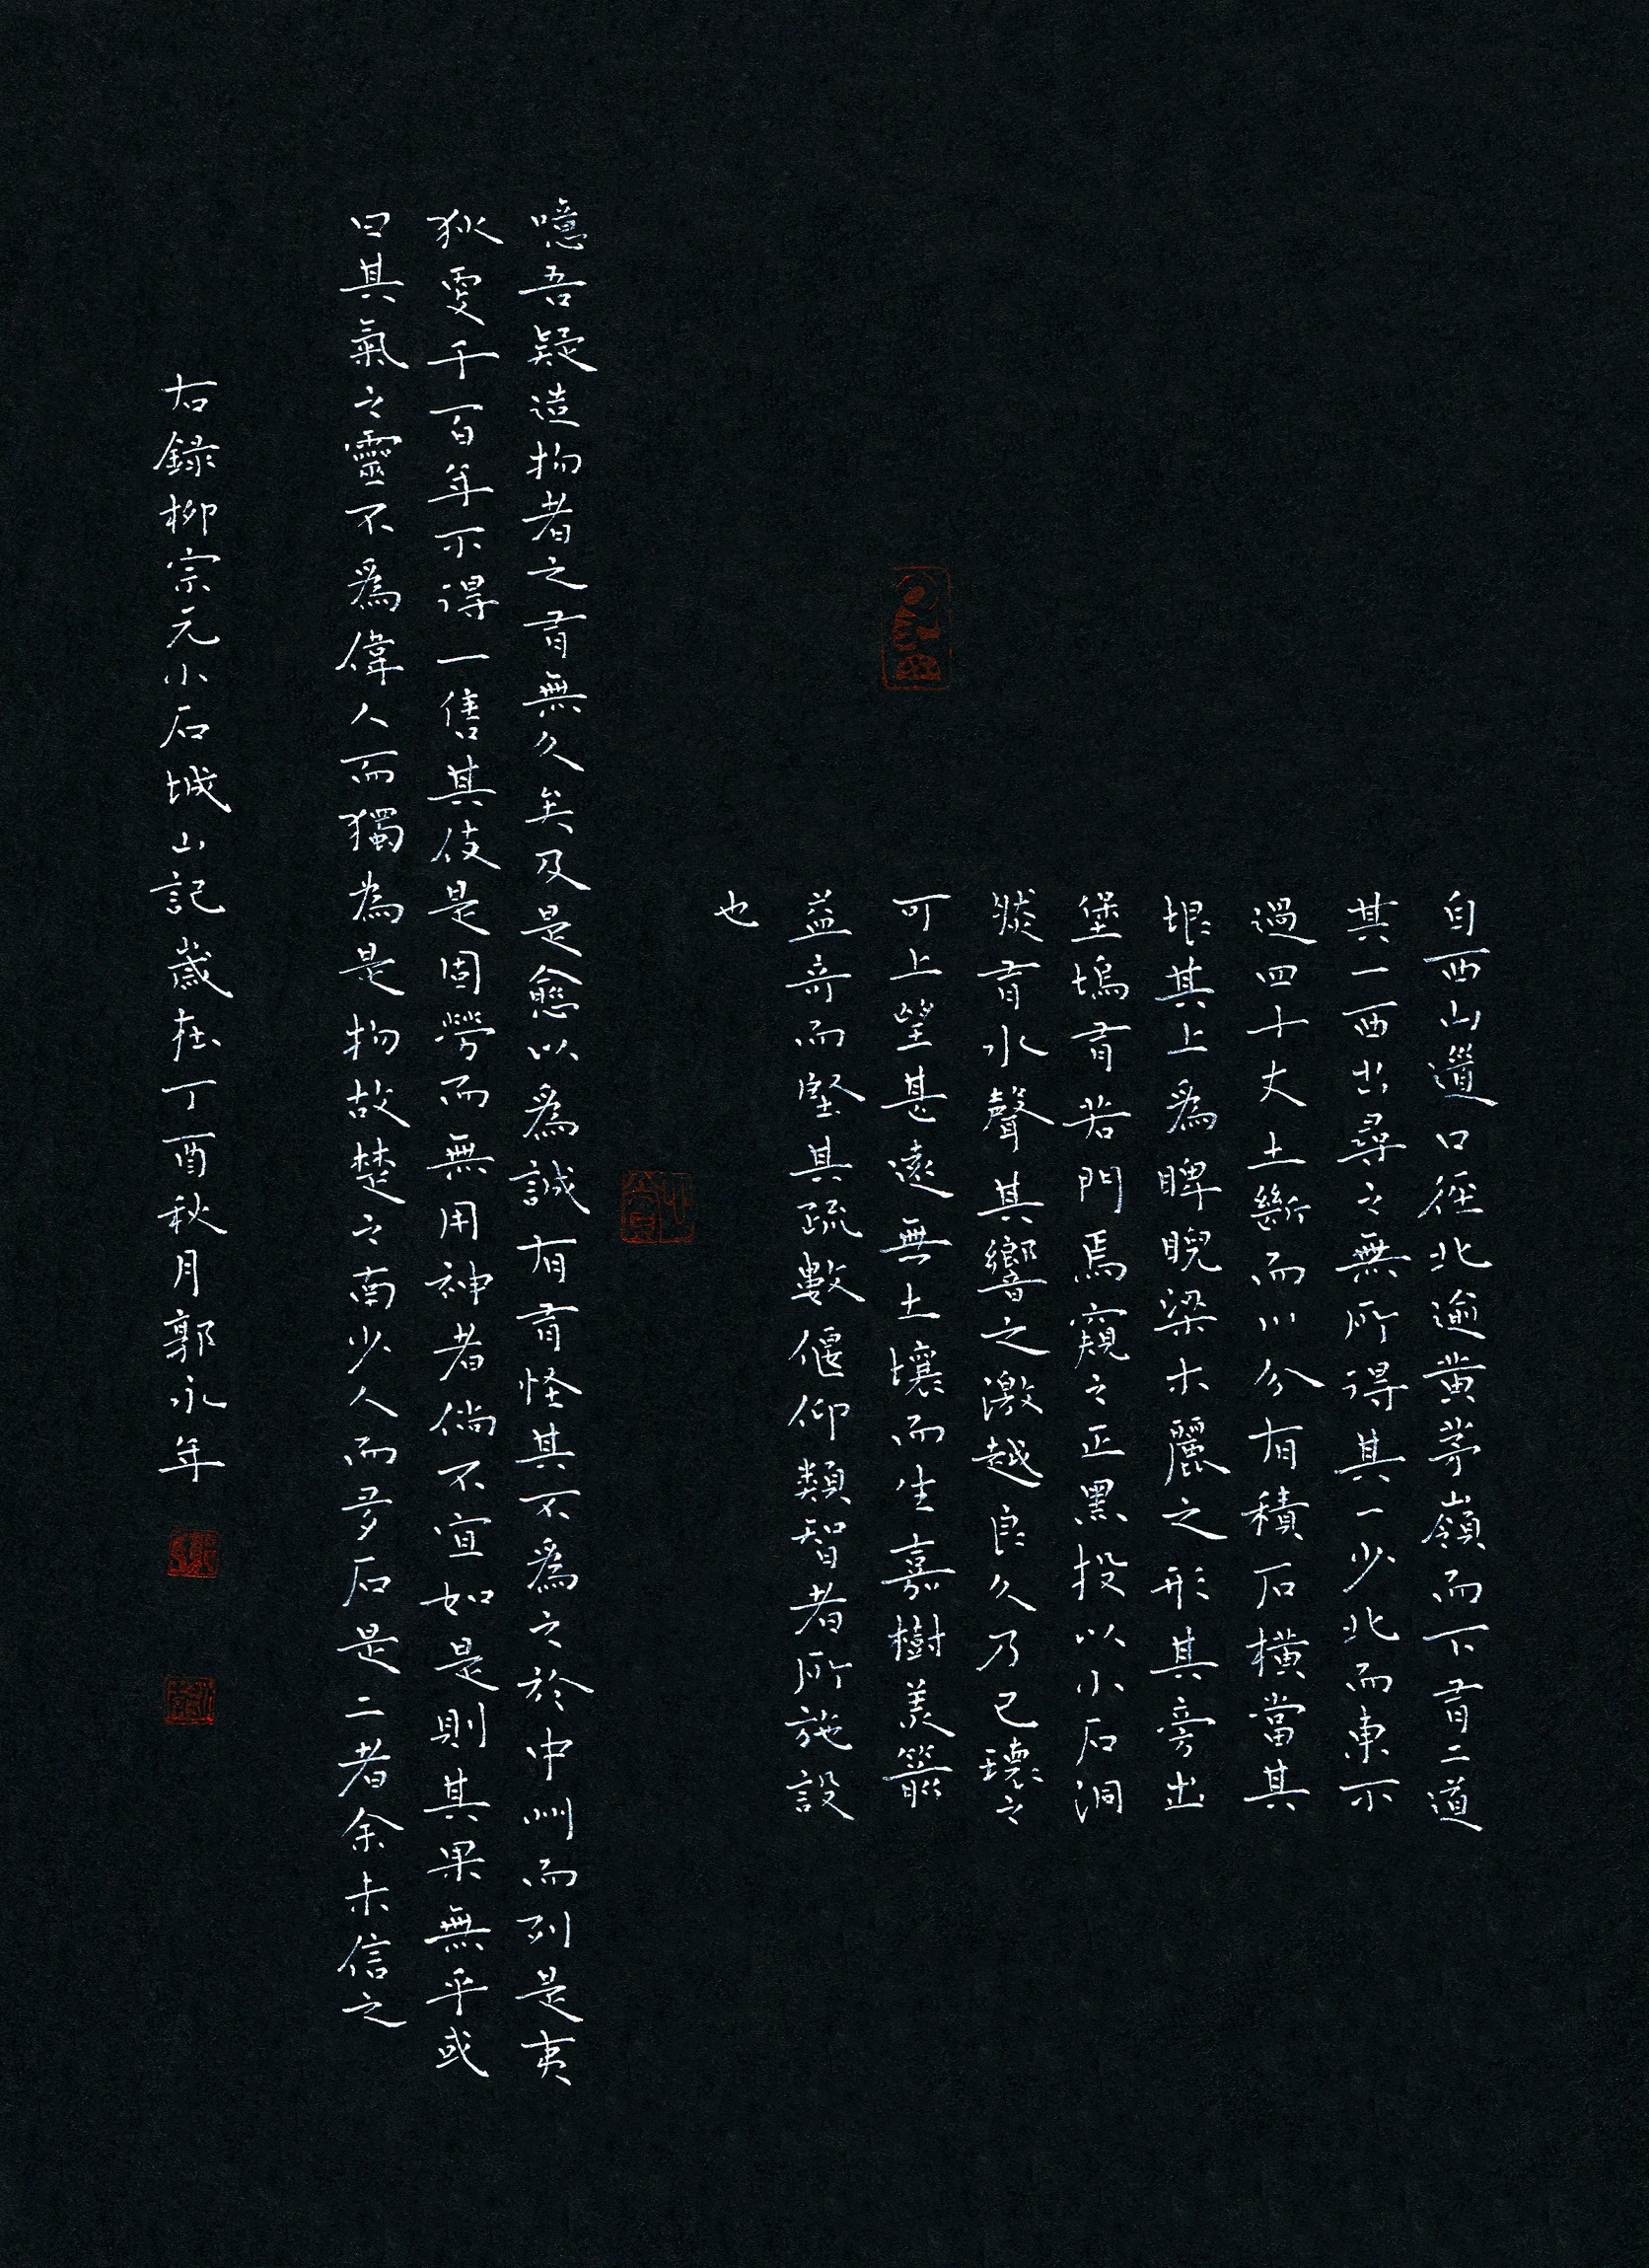 自西山道口徑北逾黃茅嶺而下有二道
其一西出尋之無所得其一少北而東不
過四十丈土斷而川分有積石橫當其
垠其上為睥睨梁木麗之形其旁出
堡塢有若門焉窺之正黑投以小石洞
然有水聲其響之激越良久乃已環之
可上望甚遠無土壤而生嘉樹美箭
益奇而堅其疏數偃仰類智者所施設
也
噫吾疑造物者之有無久矣及是愈以爲誠有有怪其不爲之於中州而列是夷
狄更千百年不得一售其伎是固勞而無用神者倘不宜如是則其果無乎或
曰其氣之靈不爲偉人而獨為是物故楚之南少人而多石是二者余未信之
右錄柳宗元小石城山記歲在丁酉秋月郭永年